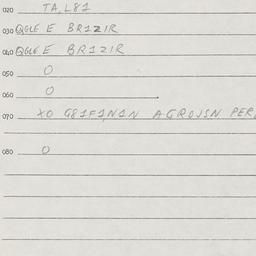 020 TA, L81
030 QGLE E BR1ZIR
040 QGLE E BR1ZIR
050 0
060 0
070 XO G81F1,N1N AGROJSN PER
080 0